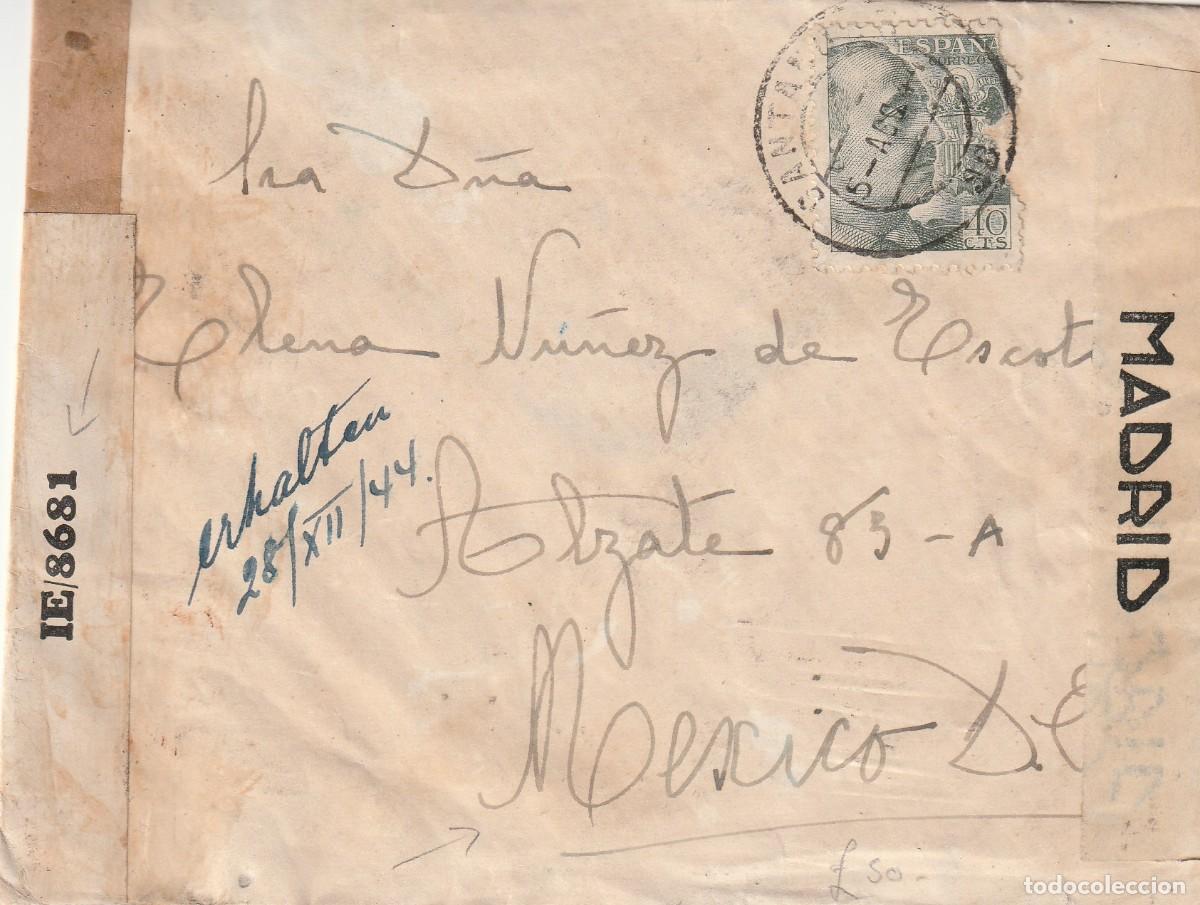 ESPAÑA
CORREOS
40
CTS
5-AGO
Sra Dña
Elena Núñez de Escot
Alzate 83-A
Mexico D.
erhalten
28/XII/44.
IE/8681
MADRID
£ 50-
todocoleccion